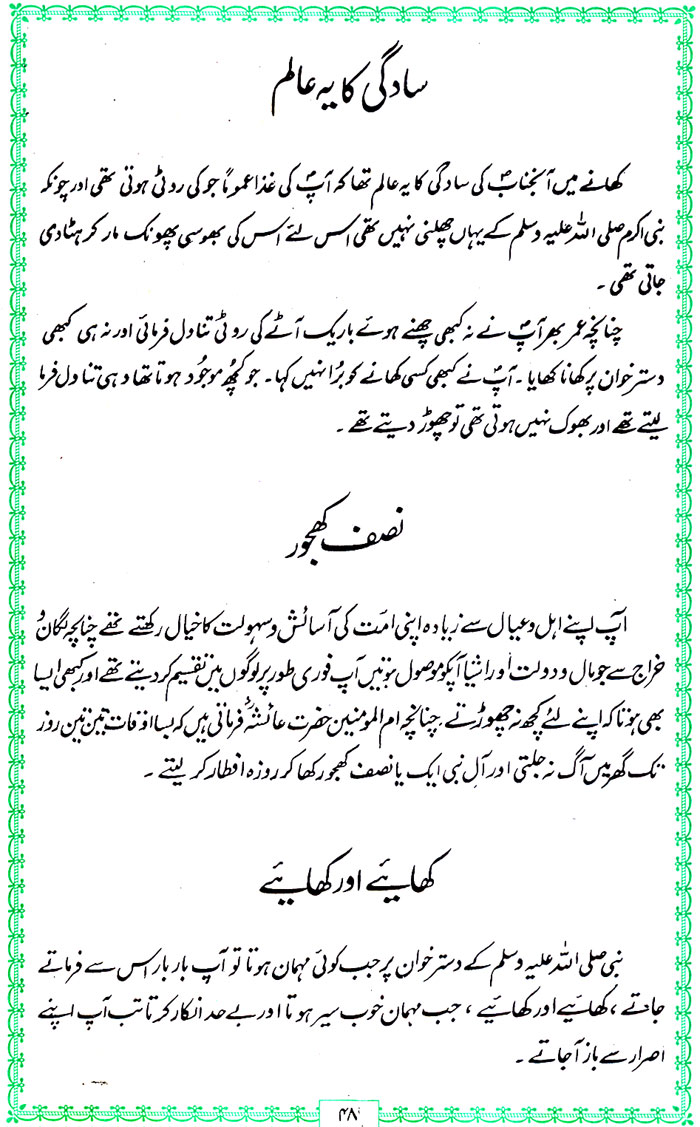 سادگی کا یہ عالم
کھانے میں آنجنابؐ کی سادگی کا یہ عالم تھا کہ آپؐ کی غذا عموماً جو کی روٹی ہوتی تھی اور چونکہ
نبی اکرم صلی اللہ علیہ وسلم کے یہاں چھلنی نہیں تھی اس لئے اس کی بھوسی پھونک مار کر ہٹا دی
جاتی تھی ۔
چنانچہ عمر بھر آپؐ نے نہ کبھی چھنے ہوئے باریک آٹے کی روٹی تناول فرمائی اور نہ ہی کبھی
دسترخوان پر کھانا کھایا ۔ آپؐ نے کبھی کسی کھانے کو بُرا نہیں کہا ۔ جو کچھ موجُود ہوتا تھا وہی تناول فرما
لیتے تھے اور بھوک نہیں ہوتی تھی تو چھوڑ دیتے تھے ۔
نصف کھجور
آپ اپنے اہل و عیال سے زیادہ اپنی امّت کی آسائش و سہولت کا خیال رکھتے تھے چنانچہ لگان و
خراج سے جو مال و دولت اور اشیا آپکو موصول ہوتیں آپ فوری طور پر لوگوں میں تقسیم کر دیتے تھے اور کبھی ایسا
بھی ہوتا کہ اپنے لئے کچھ نہ چھوڑتے ۔ چنانچہ ام المومنین حضرت عائشہؓ فرماتی ہیں کہ بسا اوقات تین تین روز
تک گھر میں آگ نہ جلتی اور آلِ نبی ایک یا نصف کھجور کھا کر روزہ افطار کر لیتے ۔
کھایئے اور کھایئے
نبی صلی اللہ علیہ وسلم کے دسترخوان پر جب کوئی مہمان ہوتا تو آپ بار بار اس سے فرماتے
جاتے ، کھایئے اور کھایئے ، جب مہمان خوب سیر ہوتا اور بے حد انکار کرتا تب آپ اپنے
اصرار سے باز آجاتے ۔
۴۸